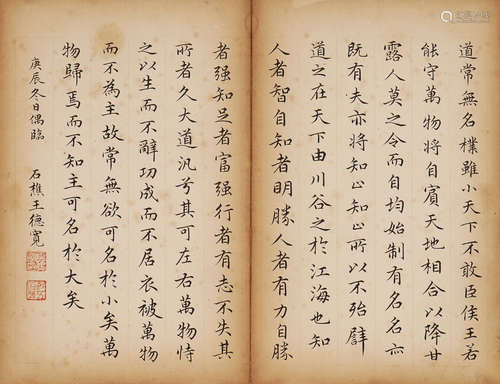 道常無名樸雖小天下不敢臣侯王若
能守萬物將自賓天地相合以降甘
露人莫之令而自均始制有名名亦
既有夫亦將知止知止所以不殆譬
道之在天下由川谷之於江海也知
人者智自知者明勝人者有力自勝
者强知足者富强行者有志不失其
所者久大道汎兮其可左右萬物恃
之以生而不辭功成而不居衣被萬物
而不為主故常無欲可名於小矣萬
物歸焉而不知主可名於大矣
庚辰冬日偶臨 石樵王德寬